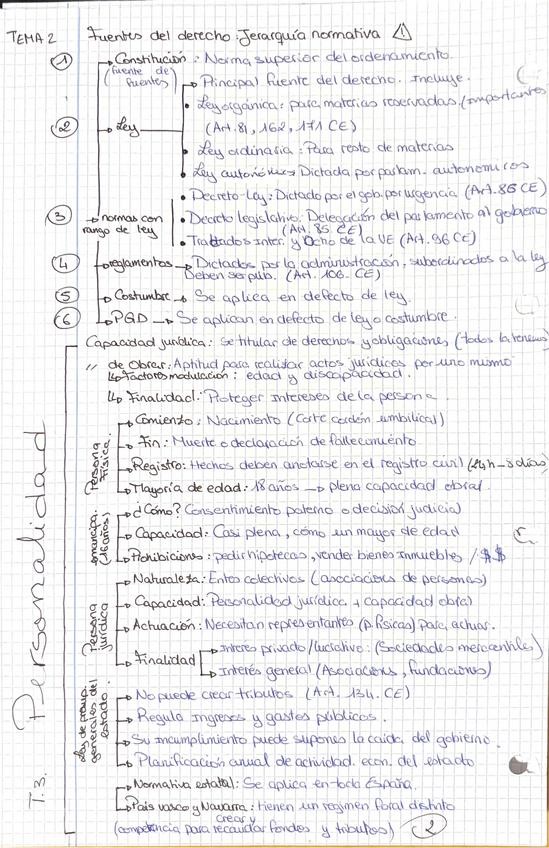 TEMA 2 Fuentes del derecho: Jerarquía normativa ⚠
① Constitución: Norma superior del ordenamiento.
(fuente de fuentes)
② Ley
Principal fuente del derecho. Incluye.
• Ley orgánica: para materias reservadas (importantes)
(Art. 81, 162, 171 CE)
• Ley ordinaria: Para resto de materias
• Ley autonómica → Dictada por parlam. autonómicos
③ normas con rango de ley
• Decreto-Ley: Dictado por el gob. por urgencia (Art. 86 CE)
• Decreto legislativo: Delegación del parlamento al gobierno
(Art. 85. CE)
• Tratados Inter. y Dcho de la UE (Art. 96 CE)
④ reglamentos → Dictados por la administración, subordinados a la ley
Deben ser pub. (Art. 106. CE)
⑤ Costumbre → Se aplica en defecto de ley.
⑥ PGD → Se aplican en defecto de ley o costumbre.
T.3. Personalidad
Capacidad jurídica: Se titular de derechos y obligaciones (todos la tenemos)
" de Obrar: Aptitud para realizar actos jurídicos por uno mismo
↳ Factores modulación: edad y discapacidad.
↳ Finalidad: Proteger intereses de la persona.
Persona física
→ Comienzo: Nacimiento (Corte cordón umbilical)
→ Fin: Muerte o declaración de fallecimiento
→ Registro: Hechos deben anotarse en el registro civil (24h - 8 días)
→ Mayoría de edad: 18 años → plena capacidad obral.
emancipa. (16 años)
→ ¿Cómo? Consentimiento paterno o decisión judicial
→ Capacidad: Casi plena, como un mayor de edad
→ Prohibiciones: pedir hipotecas, vender bienes inmuebles / $$
Persona jurídica
→ Naturaleza: Entes colectivos (asociaciones de personas)
→ Capacidad: Personalidad jurídica + capacidad obral
→ Actuación: Necesitan representantes (p. físicas) para actuar.
→ Finalidad
→ Interés privado/lucrativo: (Sociedades mercantiles)
→ Interés general (Asociaciones, fundaciones)
Ley de presup. generales del estado
→ No puede crear tributos (Art. 134. CE)
→ Regula ingresos y gastos públicos.
→ Su incumplimiento puede supones la caída del gobierno.
→ Planificación anual de actividad. econ. del estado
→ Normativa estatal: Se aplica en toda España.
→ País vasco y Navarra: tienen un regimen foral distinto
(competencia para crear y recaudar fondos y tributos) ②